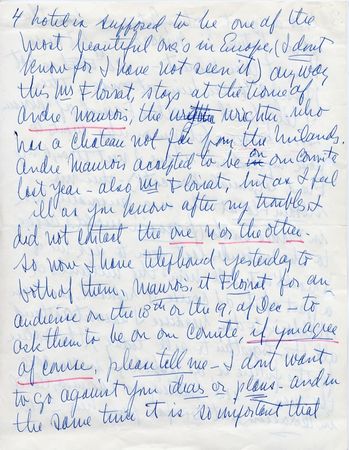 4 hotel is supposed to be one of the
most beautiful one's in Europe, (I dont
know for I have not seen it) any way
this Mr Floirat, stays at the home of
Andre Maurois, the wrighter, who
has a chateau not far from the Milands.
Andre Maurois accepted to be on our Comite
last year - also Mr Floirat, but as I feel
ill as you know after my troubles I
did not contact the one n'or the other.
So now I have telephoned yesterday to
both of them, Maurois, et Floirat for an
audience on the 18th or the 19, of Dec - to
ask them to be on our Comite, if you agree
of course, please tell me - I dont want
to go against your ideas or plans - and in
the same time it is so important that